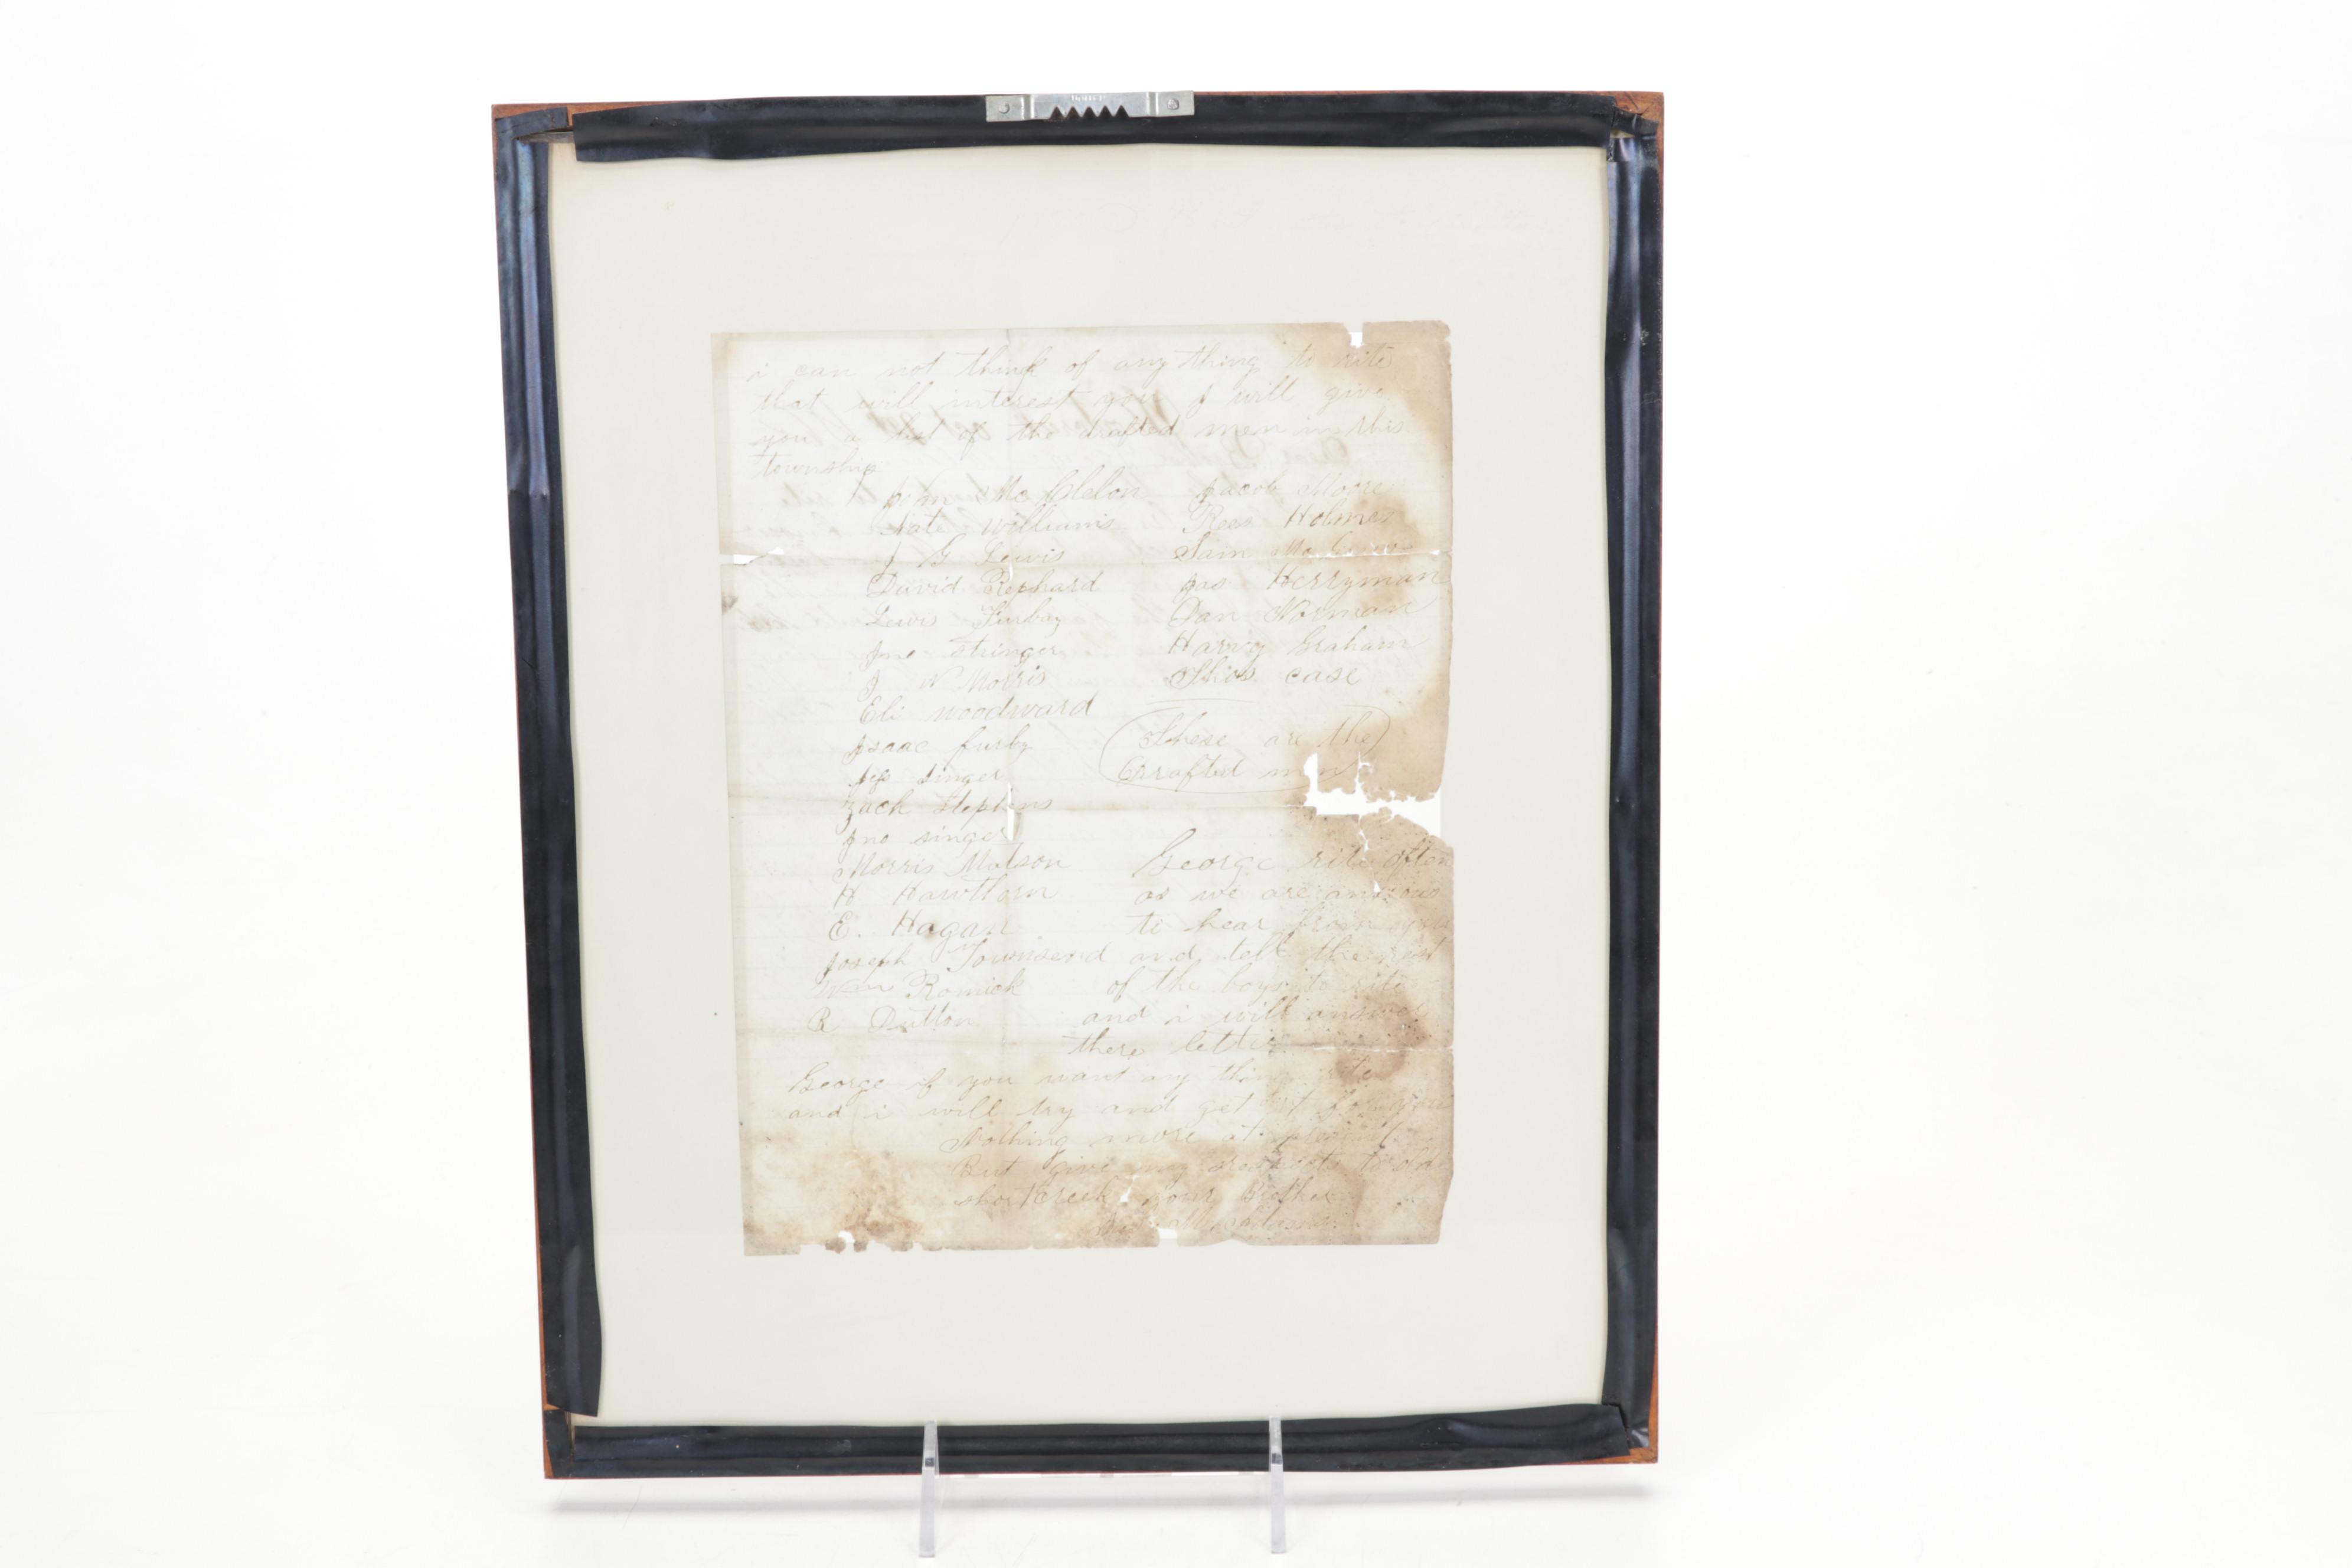 i can not think of any thing to rite
that will interest you I will give
you a list of the drafted men in this
township
Jacob Moore
Nate Williams Rees Holmes
J G Lewis Sam
David Rephard Jas Herryman
Lewis Furbay Dan Norman
Jno Stringer Harvy Graham
J W Morris Thos case
Eli woodward
Isaac furby These are the
singer Drafted men
Zach Stephens
Jno singer
Morris Matson George rite often
H Hawthorn as we are anxious
E. Hagan to hear from you
Joseph Townsend and tell the rest
Wm Romick of the boys to rite
R Dutton and i will answer
there letter
George if you want any thing rite
and i will try and get it for you
Nothing more at present
But give my respects to old
short creek your Brother